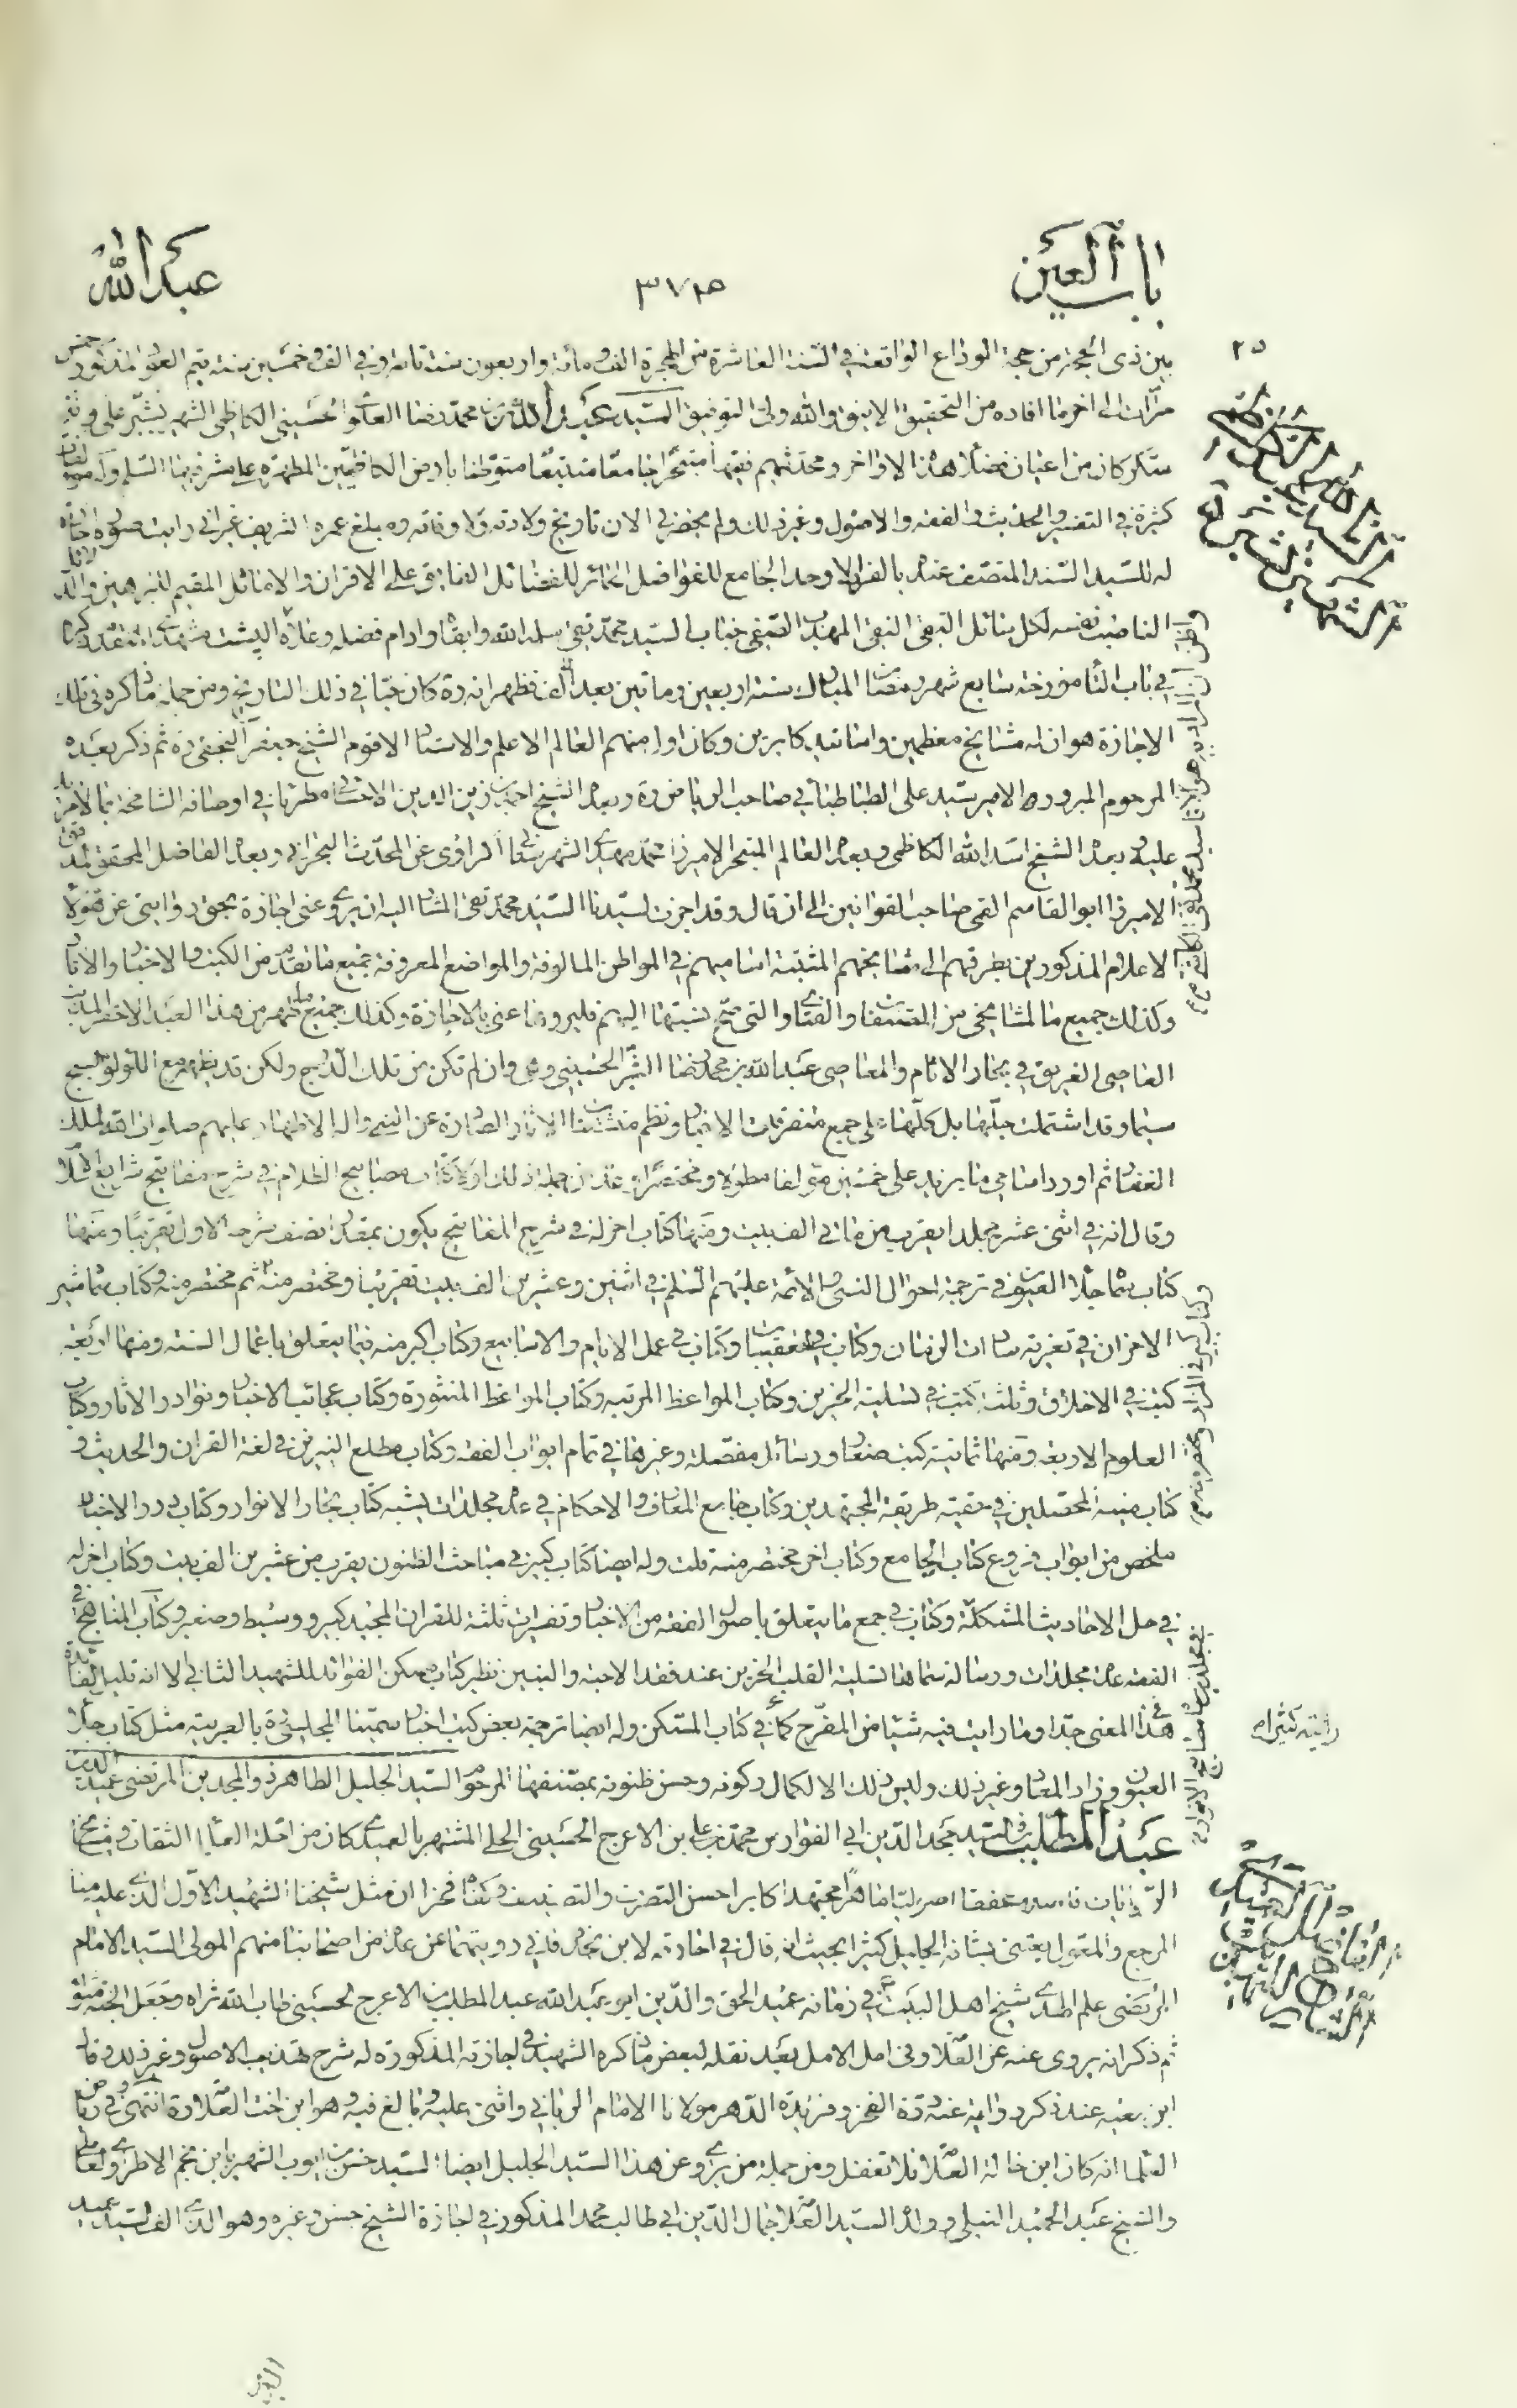 باب العين
٣٧٥
عبد الله
بين ذى الحجة من حجة الوداع الواقعة فى السنة العاشرة من الهجرة الف ومائة واربعون سنة تامة وفى الف وخمسين سنة يتم العود المذكور خمس
مرات الى اخر ما افاده من التحقيق الانيق والله ولى التوفيق السيد عبد الله بن محمد رضا العلوى الحسينى الكاظمى الشهير بشبر على وزن
سكر كان من اعيان فضلاء هذا الاواخر ومحدثيهم فقيها متبحرا جامعا متتبعا متوطنا بارض الكاظمين المطهرة على مشرفيها السلم وله مؤلفات
كثيرة فى التفسير والحديث والفقه والاصول وغير ذلك ولم يحضرنى الان تاريخ ولادته ولا وفاته وه بلغ عمره الشريف غير انى رايت صورة اجازة
له للسيد السند المنتصف عنده بالفرد الاوحد الجامع للفواضل الحائز للفضائل الفايق على الاقران والاماثل المقيم للبراهين والدلائل
الناصب نفسه لكل سائل التقى النقى المهذب الصفى جناب السيد محمد تقى سلمه الله وابقاه وادام فضله وعلاه البشت مشهدى المتقدم ذكره
فى باب التاء مورخة سابع شهر رمضان المبارك سنة اربعين وماتين بعد الف فظهر انه ره كان حيا فى ذلك التاريخ ومن جملة ما ذكره فى تلك
الاجازة هو ان له مشايخ معظمين واساتيد كابرين وكان اولا منهم العالم الاعلم والاستاد الاقوم الشيخ جعفر النجفى ره ثم ذكر بعده
المرحوم المبرور الامير سيد على الطباطبائى صاحب الرياض ره وبعده الشيخ احمد بن زين الدين الاحسائى مطريا فى اوصافه الشامخة بما لا مزيد
عليه وبعده الشيخ اسد الله الكاظمى وبعده العالم المتبحر الاميرزا محمد مهدى الشهرستانى الراوى عن المحدث البحرانى وبعده الفاضل المحقق المدقق
الاميرزا ابو القاسم القمى صاحب القوانين الى ان قال وقد اجزت لسيدنا السيد محمد تقى المشار اليه ان يروى عنى اجازة بحق روايتى عن هؤلاء
الاعلام المذكورين بطرقهم الى مشايخهم المثبتة اساميهم فى المواطن المالوفة والمواضع المعروفة جميع ما تقدم من الكتب والاخبار والاثار
وكذلك جميع ما لمشايخى من المصنفات والفتاوى التى صح نسبتها اليهم فليروها عنى بالاجازة وكذلك جميع ما ظهر من هذا العبد الاحقر المذنب
العاصى الغريق فى بحار الاثام والمعاصى عبد الله بن محمد رضا الشبر الحسينى وهى وان لم تكن من تلك الدرج ولكن قد ينظم مع اللؤلؤ السبج
سيما وقد اشتملت جلها بل كلها على جمع متفرقات الاخبار ونظم متشتتات الاثار الصادرة عن النبى واله الاطهار عليهم صلوات الله الملك
الغفار ثم اورد اسامى ما يزيد على خمسين مؤلفا مطولا ومختصرا وعد من جملة ذلك اولا كتاب مصابيح الظلام فى شرح مفاتيح شرايع الاسلام
وقال انه فى اثنى عشر مجلدا يقرب من مائتى الف بيت ومنها كتاب اخر له فى شرح المفاتيح يكون بمقدار نصف شرحه الاول تقريبا ومنها
كتاب سماه جلاء العيون فى ترجمة احوال النبى والائمة عليهم السلم فى اثنين وعشرين الف بيت تقريبا ومختصر منه ثم مختصر منه وكتاب سماه مثير
الاحزان فى تعزية سادات الزمان وكتاب فى التعقيبات وكتاب فى عمل الايام والاسابيع وكتاب اكبر منه فيما يتعلق باعمال السنة ومنها اربعة
كتب فى الاخلاق وثلثة كتب فى تسلية الحزين وكتاب المواعظ المرتبة وكتاب المواعظ المنثورة وكتاب عجائب الاخبار ونوادر الاثار وكتاب
العلوم الاربعة ومنها ثمانية كتب صغار ورسائل مفصلة وغيرها فى تمام ابواب الفقه وكتاب مطلع النيرين فى لغة القران والحديث و
كتاب منية المحصلين فى حقية طريقة المجتهدين وكتاب جامع المعارف والاحكام فى عدة مجلدات يشبه كتاب بحار الانوار وكتاب درر الاخبار
ملخص من ابواب فروع كتاب الجامع وكتاب اخر مختصر منه قلت وله ايضا كتاب كبير فى مباحث الظنون يقرب من عشرين الف بيت وكتاب اخر له
فى حل الاحاديث المشكلة وكتاب فى جمع ما يتعلق باصول الفقه من الاخبار وتفسيرات ثلثة للقران المجيد كبير ووسيط وصغير وكتاب المناهج فى
الفقه عدة مجلدات ورسالة سماها تسلية القلب الحزين عند فقد الاحبة والبنين نظير كتاب مسكن الفوائد للشهيد الثانى الا انه قليل الفائدة
فى هذا المعنى جدا وما رايت فيه شيئا من المفرح كما فى كتاب المسكن وله ايضا ترجمة بعض كتب اخبار سمينا المجلسى ره بالعربية مثل كتاب جلاء
العيون وزاد المعاد وغير ذلك وليس ذلك الا لكمال ركونه وحسن ظنونه بمصنفها المرحوم السيد الجليل الطاهر ذو المجدين المرتضى عميد الدين
عبد المطلب بن السيد مجد الدين ابى الفوارس محمد بن على بن الاعرج الحسينى الحلى المشتهر بالعميدى كان من اجلة العلماء الثقات ومشايخ
الروايات محققا اصوليا ماهرا مجتهدا كابرا حسن التصرف والتصنيف وكفاه فخرا ان مثل شيخنا الشهيد الاول الذى عليه منا
المرجع والمعول يعتنى بشانه الجليل كثيرا بحيث انه قال فى اجازته لابن نجدة فانى رويتها عن عدة من اصحابنا منهم المولى السيد الامام
المرتضى علم الهدى شيخ اهل البيت ع فى زمانه عميد الحق والدين ابو عبد الله عبد المطلب بن الاعرج الحسينى طاب الله ثراه وجعل الجنة مثواه
ثم ذكر انه يروى عنه عن العلامة وفى امل الامل بعد نقله لبعض ما ذكره الشهيد فى اجازته المذكورة له شرح تهذيب الاصول وغير ذلك وقال
ابن معية عند ذكر روايته عنه درة الفخر وفريدة الدهر مولانا الامام الربانى واثنى عليه وبالغ فيه وهو ابن اخت العلامة انتهى وفى رياض
العلماء انه كان ابن خالة العلامة فلا تغفل ومن جملة من يروى عن هذا السيد الجليل ايضا السيد حسن بن ايوب الشهير بابن نجم الاطراوى العاملى
والشيخ عبد الحميد النيلى وولده السيد العلامة جمال الدين ابى طالب محمد المذكور فى اجازة الشيخ حسن وغيره وهو الذى الف السيد عميد
رايته كثيراه